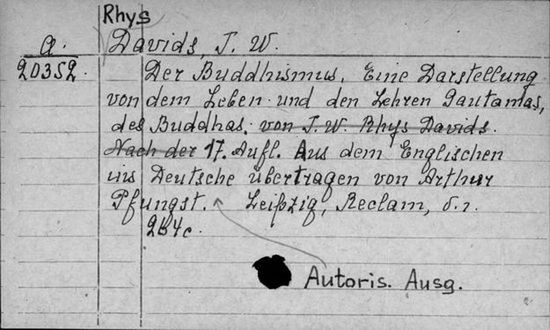 Rhys
a. Davids, T. W.
20352. Der Buddhismus. Eine Darstellung
von dem Leben und den Lehren Gautamas,
des Buddhas. von T. W. Rhys Davids.
Nach der 17. Aufl. Aus dem Englischen
ins Deutsche übertragen von Arthur
Pfungst. Leipzig, Reclam, o. J.
Autoris. Ausg.